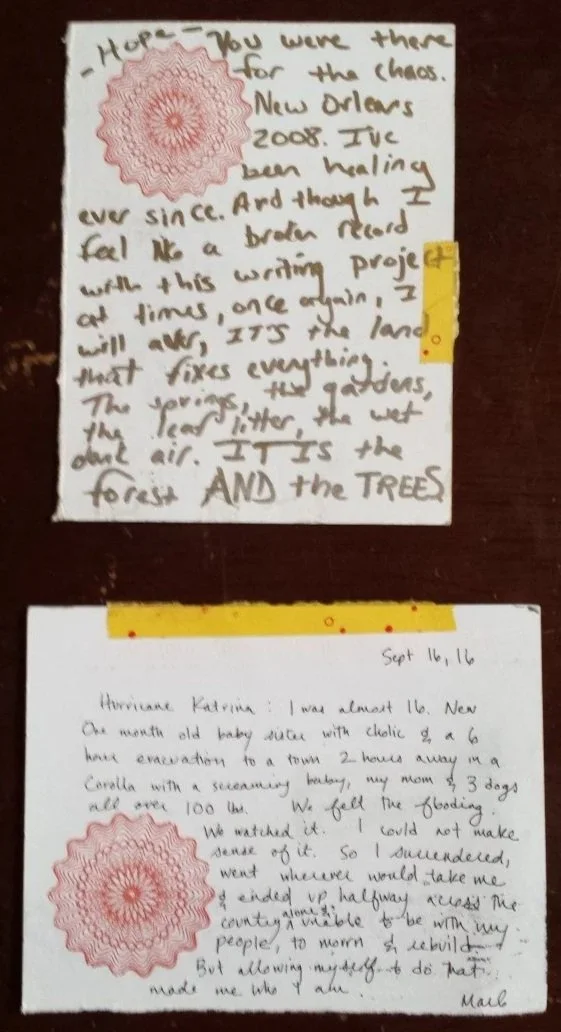 - Hope - You were there
for the chaos.
New Orleans
2008. I've
been healing
ever since. And though I
feel like a broken record
with this writing project
at times, once again, I
will aver, IT'S the land
that fixes everything.
The springs, the gardens,
the leaf litter, the wet
dank air. IT IS the
forest AND the TREES
Sept 16, 16
Hurricane Katrina: I was almost 16. New
One month old baby sister with cholic & a 6
hour evacuation to a town 2 hours away in a
Corolla with a screaming baby, my mom & 3 dogs
all over 100 lbs. We fell the flooding.
We watched it. I could not make
sense of it. So I surrendered,
went wherever would take me
& ended up halfway across the
country alone & unable to be with my
people, to morn & rebuild
But allowing myself to do that
made me who I am.